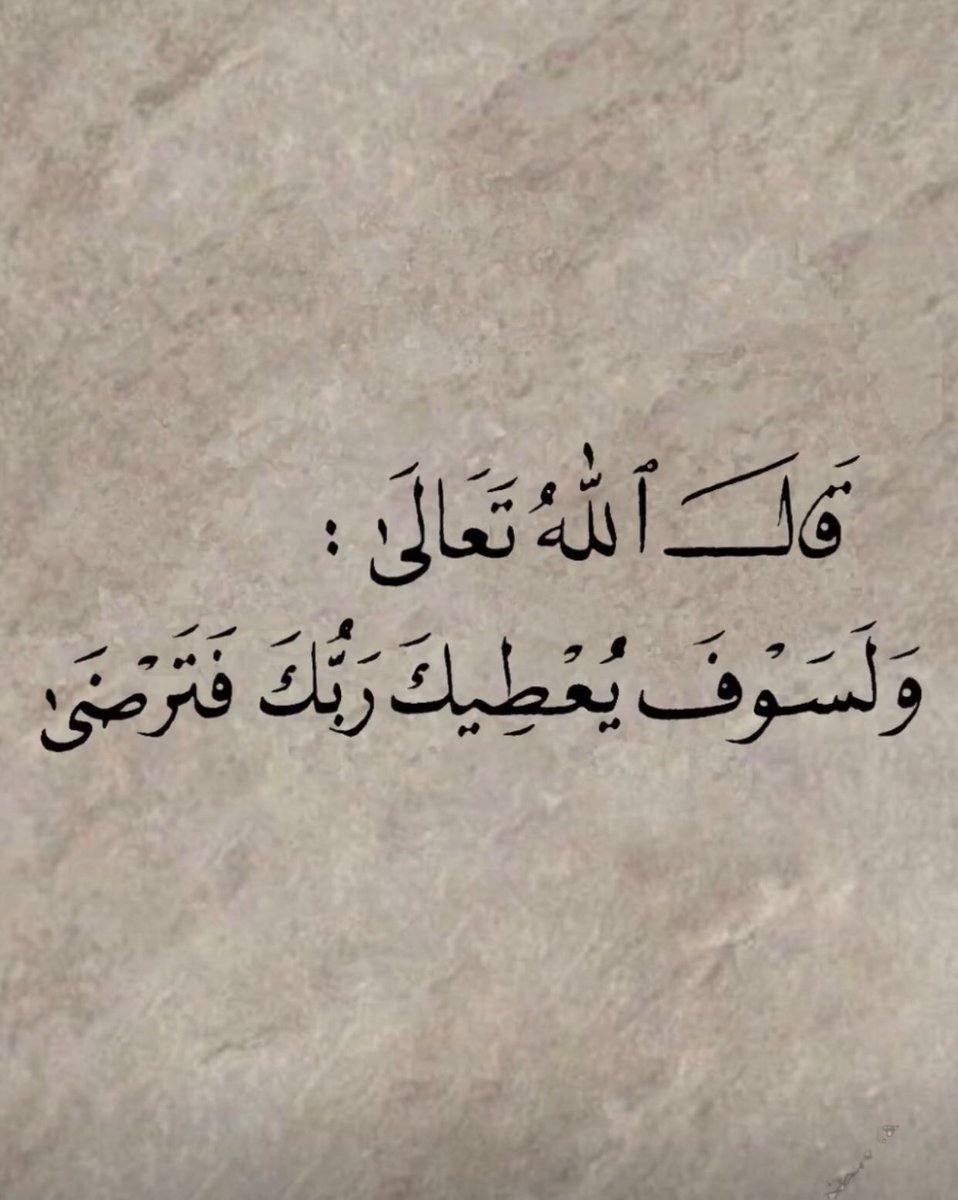 قَالَ ٱللَّهُ تَعَالَىٰ :
وَلَسَوْفَ يُعْطِيكَ رَبُّكَ فَتَرْضَىٰ